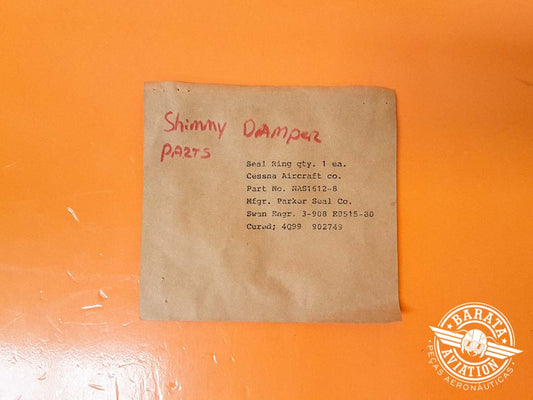 Shimmy Damper
Parts
Seal Ring qty. 1 ea.
Cessna Aircraft co.
Part No. NAS1612-8
Mfgr. Parker Seal Co.
Swan Engr. 3-908 E0515-80
Cured; 4Q99 902749
BARATA
AVIATION
PEÇAS AERONÁUTICAS